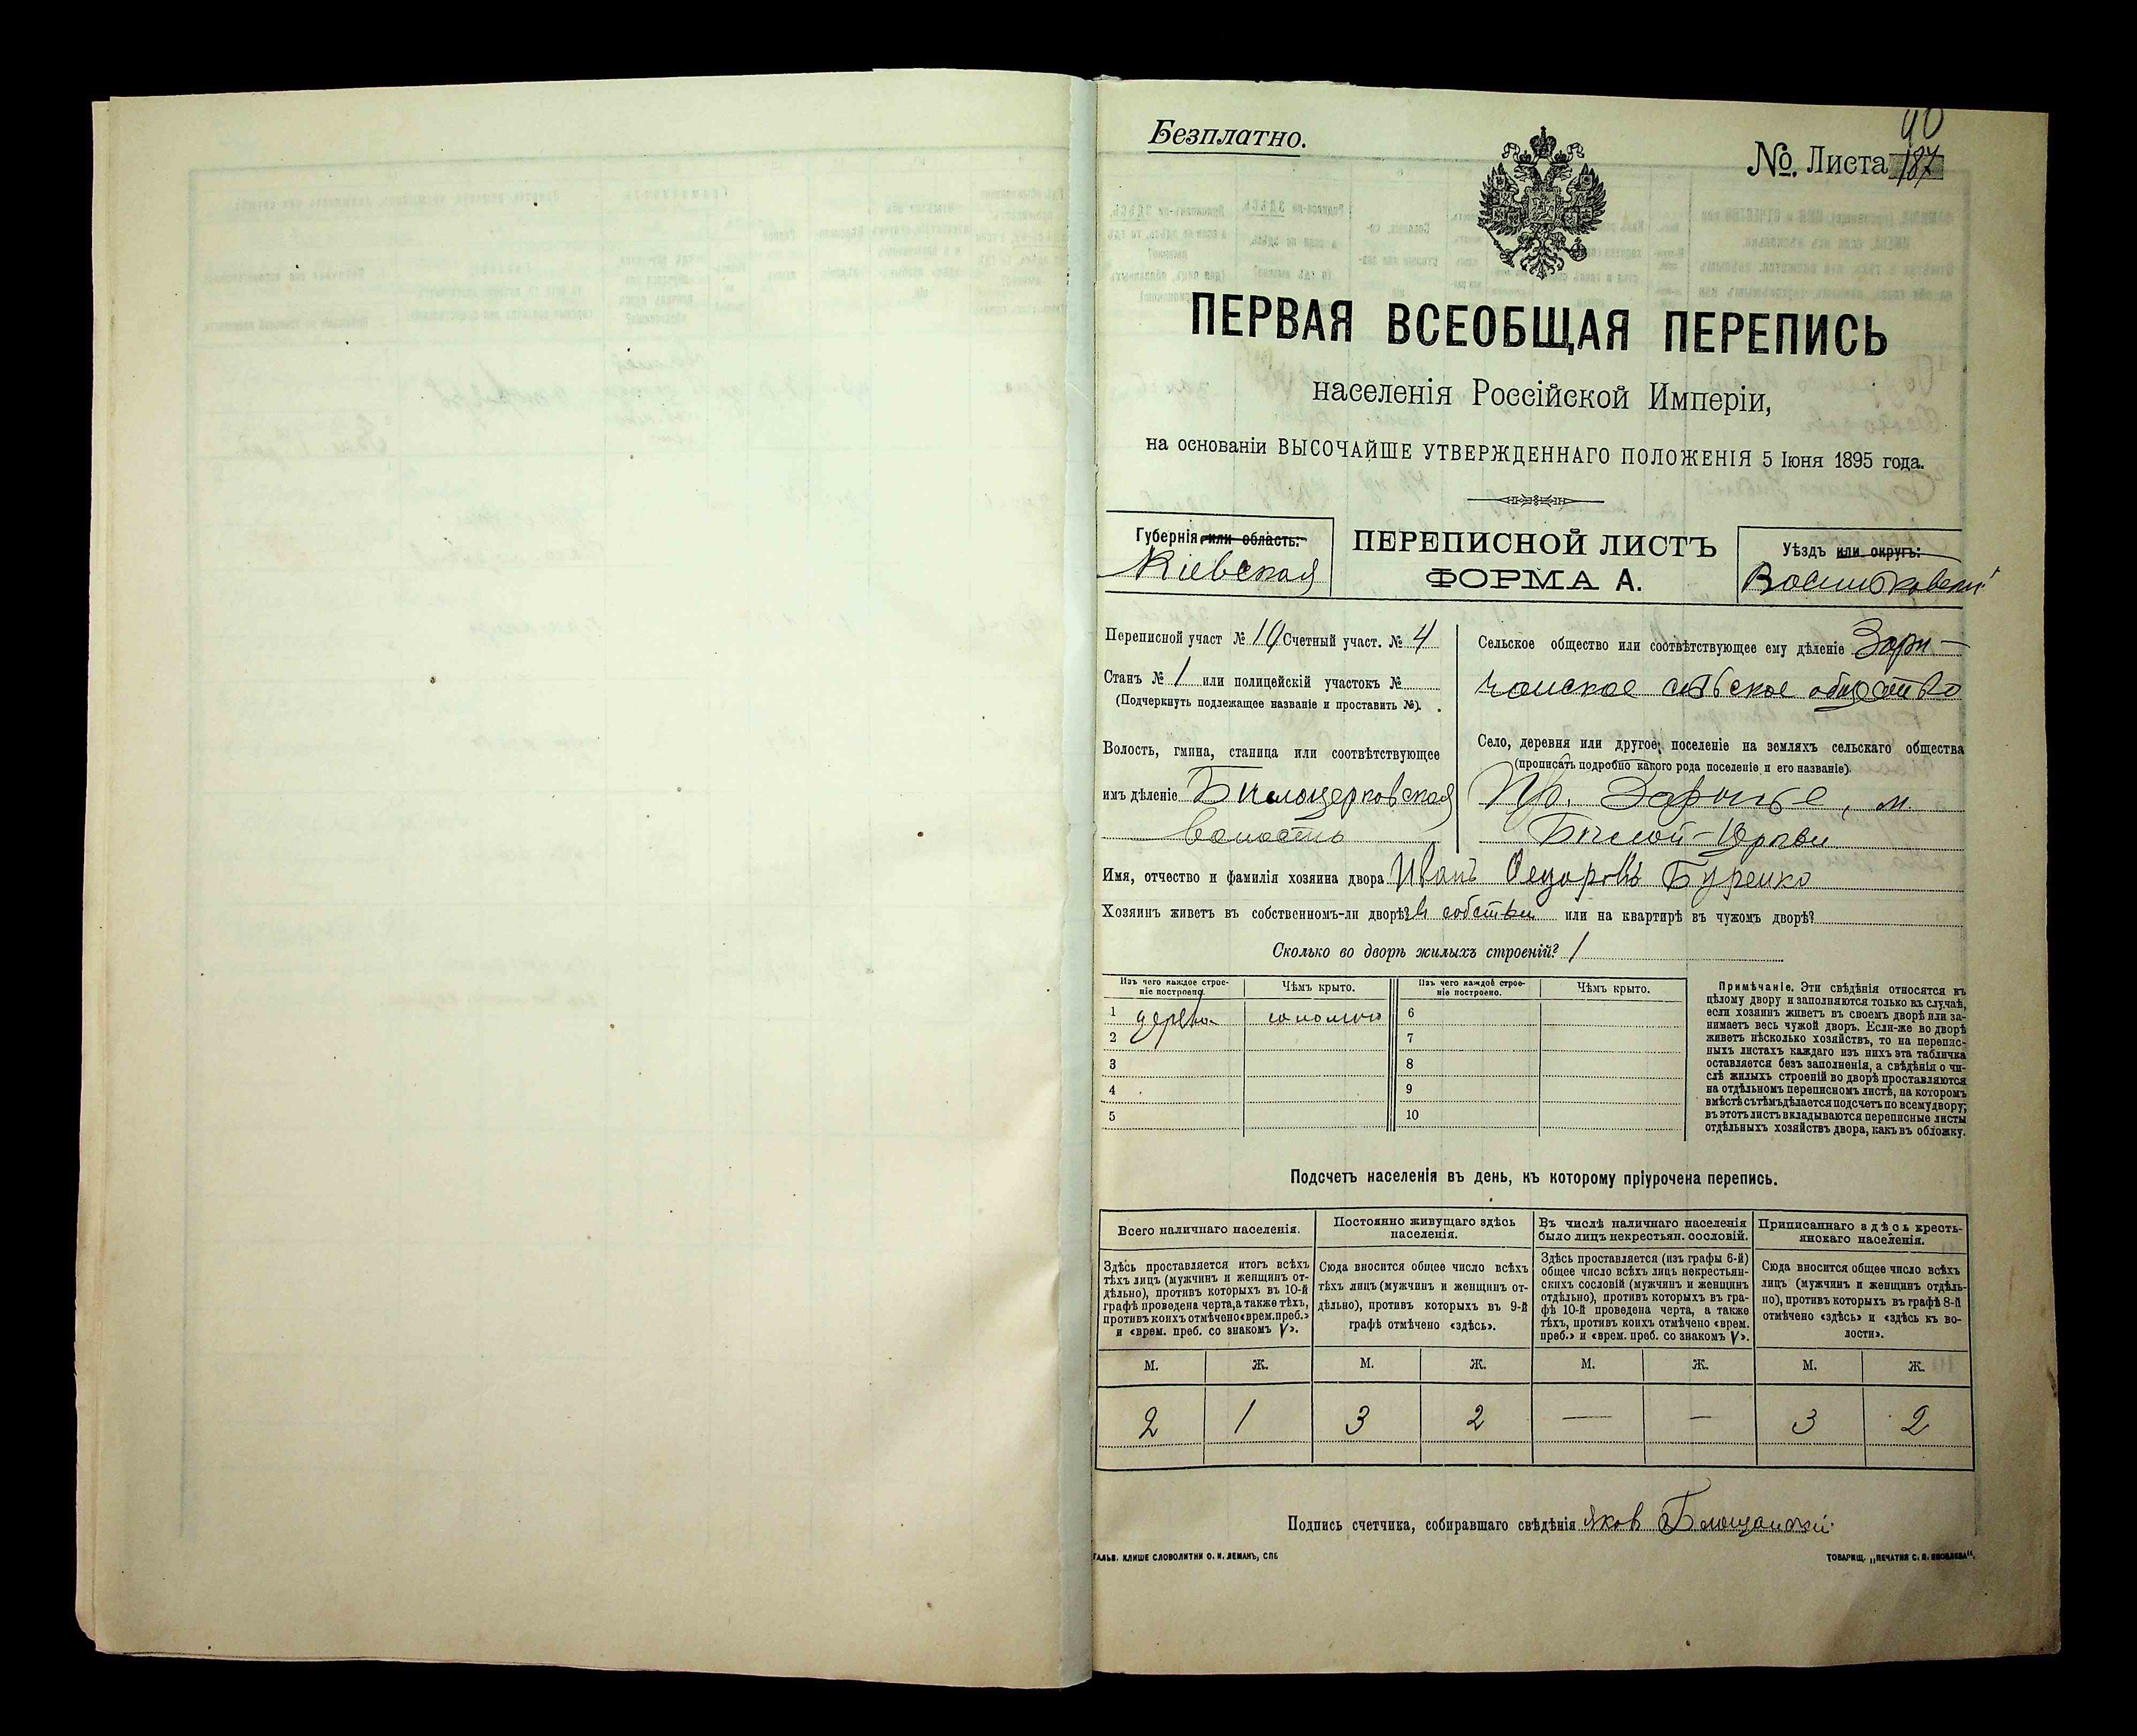 Безплатно.
40
№. Листа 187
ПЕРВАЯ ВСЕОБЩАЯ ПЕРЕПИСЬ
населенія Россійской Имперіи,
на основаніи ВЫСОЧАЙШЕ УТВЕРЖДЕННАГО ПОЛОЖЕНІЯ 5 Іюня 1895 года.
Губернія или область:
Кіевская
ПЕРЕПИСНОЙ ЛИСТЪ
ФОРМА А.
Уѣздъ или округъ:
Переписной участ № 14 Счетный участ. № 4
Станъ № 1 или полицейскій участокъ №
(Подчеркнуть подлежащее названіе и проставить №).
Волость, гмина, станица или соотвѣтствующее
имъ дѣленіе Бѣлоцерковская
волость
Сельское общество или соотвѣтствующее ему дѣленіе Зари-
сельское общество
Село, деревня или другое поселеніе на земляхъ сельскаго общества
(прописать подробно какого рода поселеніе и его названіе).
Пр. Зарічье, м.
Бѣлой-Церкви
Имя, отчество и фамилія хозяина двора Иванъ Федоровъ Буренко
Хозяинъ живетъ въ собственномъ-ли дворѣ? въ собствен или на квартирѣ въ чужомъ дворѣ?
Сколько во дворѣ жилыхъ строеній? 1
Изъ чего каждое строе-
ніе построено.
Чѣмъ крыто.
Изъ чего каждое строе-
ніе построено.
Чѣмъ крыто.
1 дерева соломою 6
2 7
3 8
4 9
5 10
Примѣчаніе. Эти свѣдѣнія относятся къ
цѣлому двору и заполняются только въ случаѣ,
если хозяинъ живетъ въ своемъ дворѣ или за-
нимаетъ весь чужой дворъ. Если-же во дворѣ
живетъ нѣсколько хозяйствъ, то на перепис-
ныхъ листахъ каждаго изъ нихъ эта табличка
оставляется безъ заполненія, а свѣдѣнія о чи-
слѣ жилыхъ строеній во дворѣ проставляются
на отдѣльномъ переписномъ листѣ, на которомъ
вмѣстѣ съ тѣмъ дѣлается подсчетъ по всему двору;
въ этотъ листъ вкладываются переписные листы
отдѣльныхъ хозяйствъ двора, какъ въ обложку.
Подсчетъ населенія въ день, къ которому пріурочена перепись.
Всего наличнаго населенія.
Здѣсь проставляется итогъ всѣхъ
тѣхъ лицъ (мужчинъ и женщинъ от-
дѣльно), противъ которыхъ въ 10-й
графѣ проведена черта, а также тѣхъ,
противъ коихъ отмѣчено «врем. преб.»
и «врем. преб. со знакомъ V».
Постоянно живущаго здѣсь
населенія.
Сюда вносится общее число всѣхъ
тѣхъ лицъ (мужчинъ и женщинъ от-
дѣльно), противъ которыхъ въ 9-й
графѣ отмѣчено «здѣсь».
Въ числѣ наличнаго населенія
было лицъ некрестьян. сословій.
Здѣсь проставляется (изъ графы 6-й)
общее число всѣхъ лицъ некрестьян-
скихъ сословій (мужчинъ и женщинъ
отдѣльно), противъ которыхъ въ гра-
фѣ 10-й проведена черта, а также
тѣхъ, противъ коихъ отмѣчено «врем.
преб.» и «врем. преб. со знакомъ V».
Приписаннаго здѣсь кресть-
янскаго населенія.
Сюда вносится общее число всѣхъ
лицъ (мужчинъ и женщинъ отдѣль-
но), противъ которыхъ въ графѣ 8-й
отмѣчено «здѣсь» и «здѣсь къ во-
лости».
М. Ж. М. Ж. М. Ж. М. Ж.
2 1 3 2 — — 3 2
Подпись счетчика, собиравшаго свѣдѣнія Яков
ГАЛЬВ. КЛИШЕ СЛОВОЛИТНИ О. И. ЛЕМАНЪ, СПБ
ТОВАРИЩ. „ПЕЧАТНЯ С. П. ЯКОВЛЕВА".